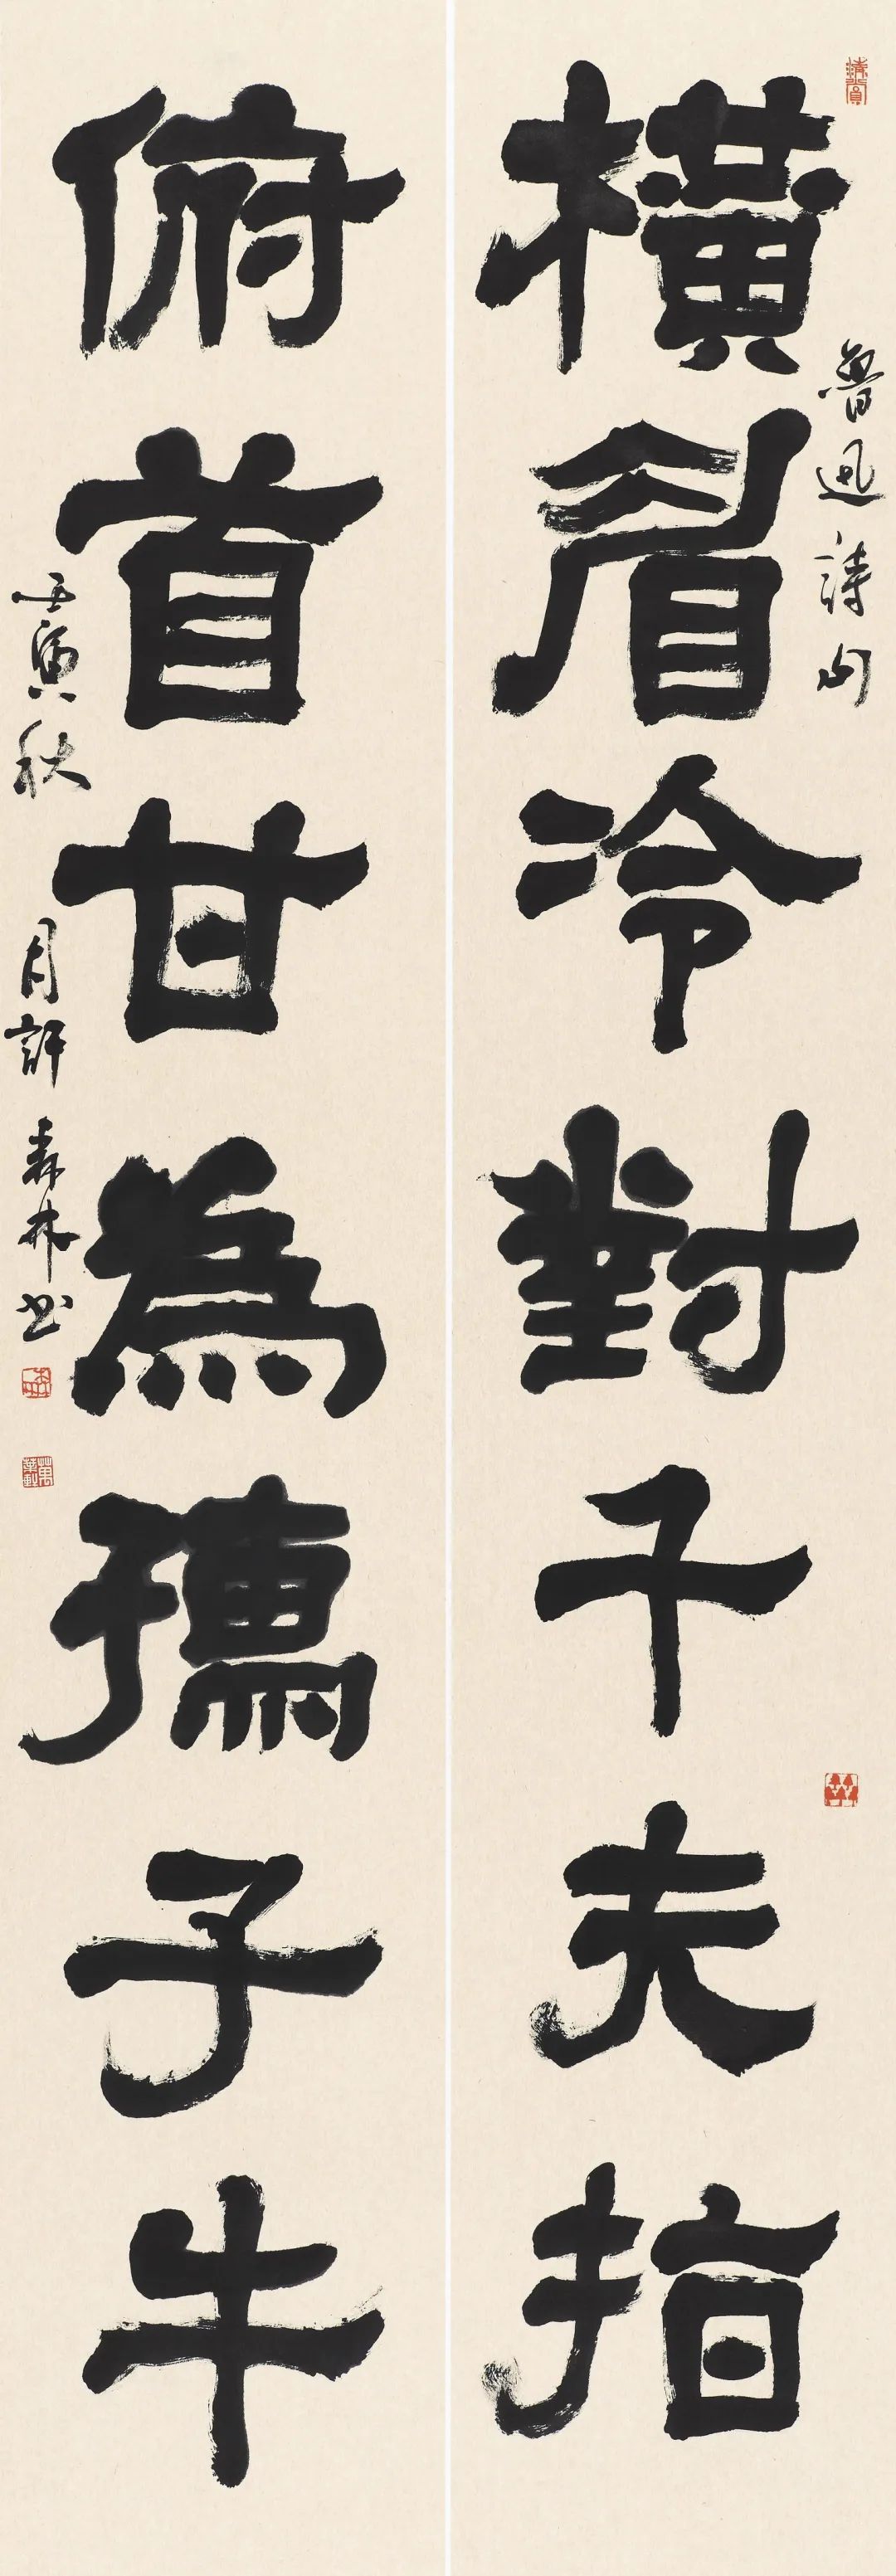 橫眉冷對千夫指
魯迅詩句
俯首甘為孺子牛
壬寅秋月許森林书